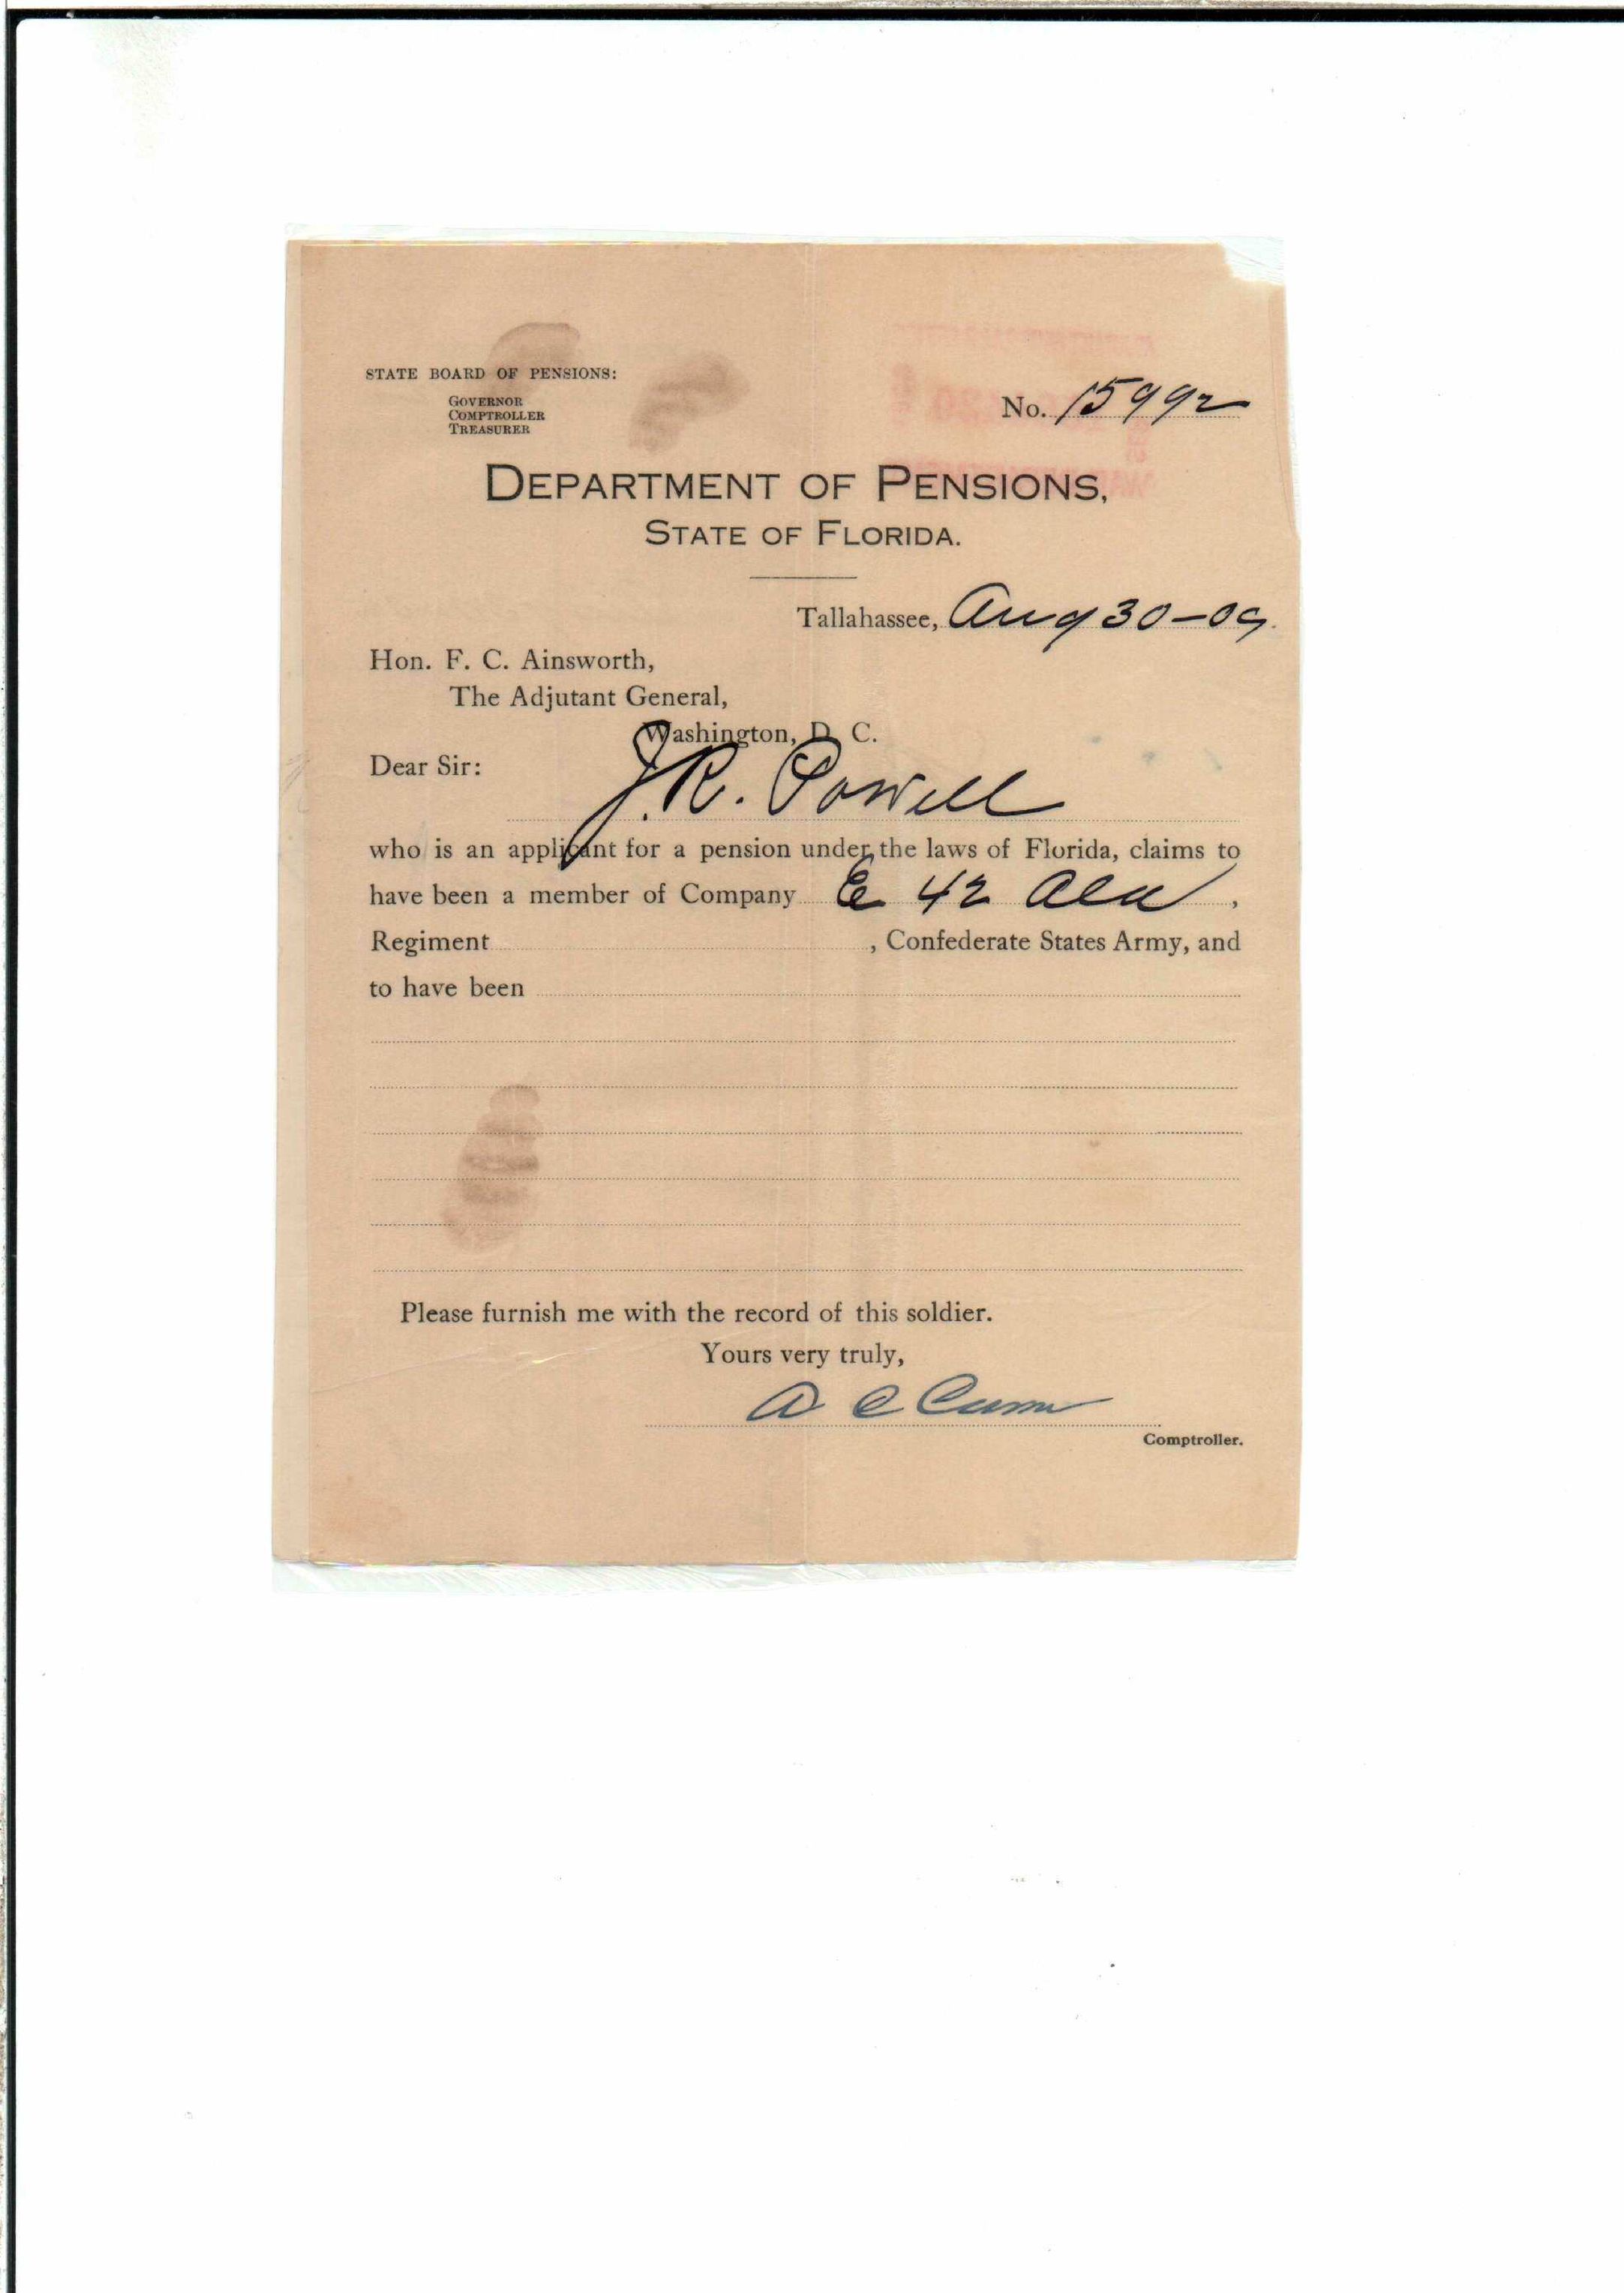 STATE BOARD OF PENSIONS:
GOVERNOR
COMPTROLLER
TREASURER
No. 15992
DEPARTMENT OF PENSIONS,
STATE OF FLORIDA.
Tallahassee, Aug 30-09.
Hon. F. C. Ainsworth,
The Adjutant General,
Washington, D. C.
Dear Sir:
J. R. Powell
who is an applicant for a pension under the laws of Florida, claims to
have been a member of Company E 42 Ala ,
Regiment , Confederate States Army, and
to have been
Please furnish me with the record of this soldier.
Yours very truly,
A C Croom
Comptroller.